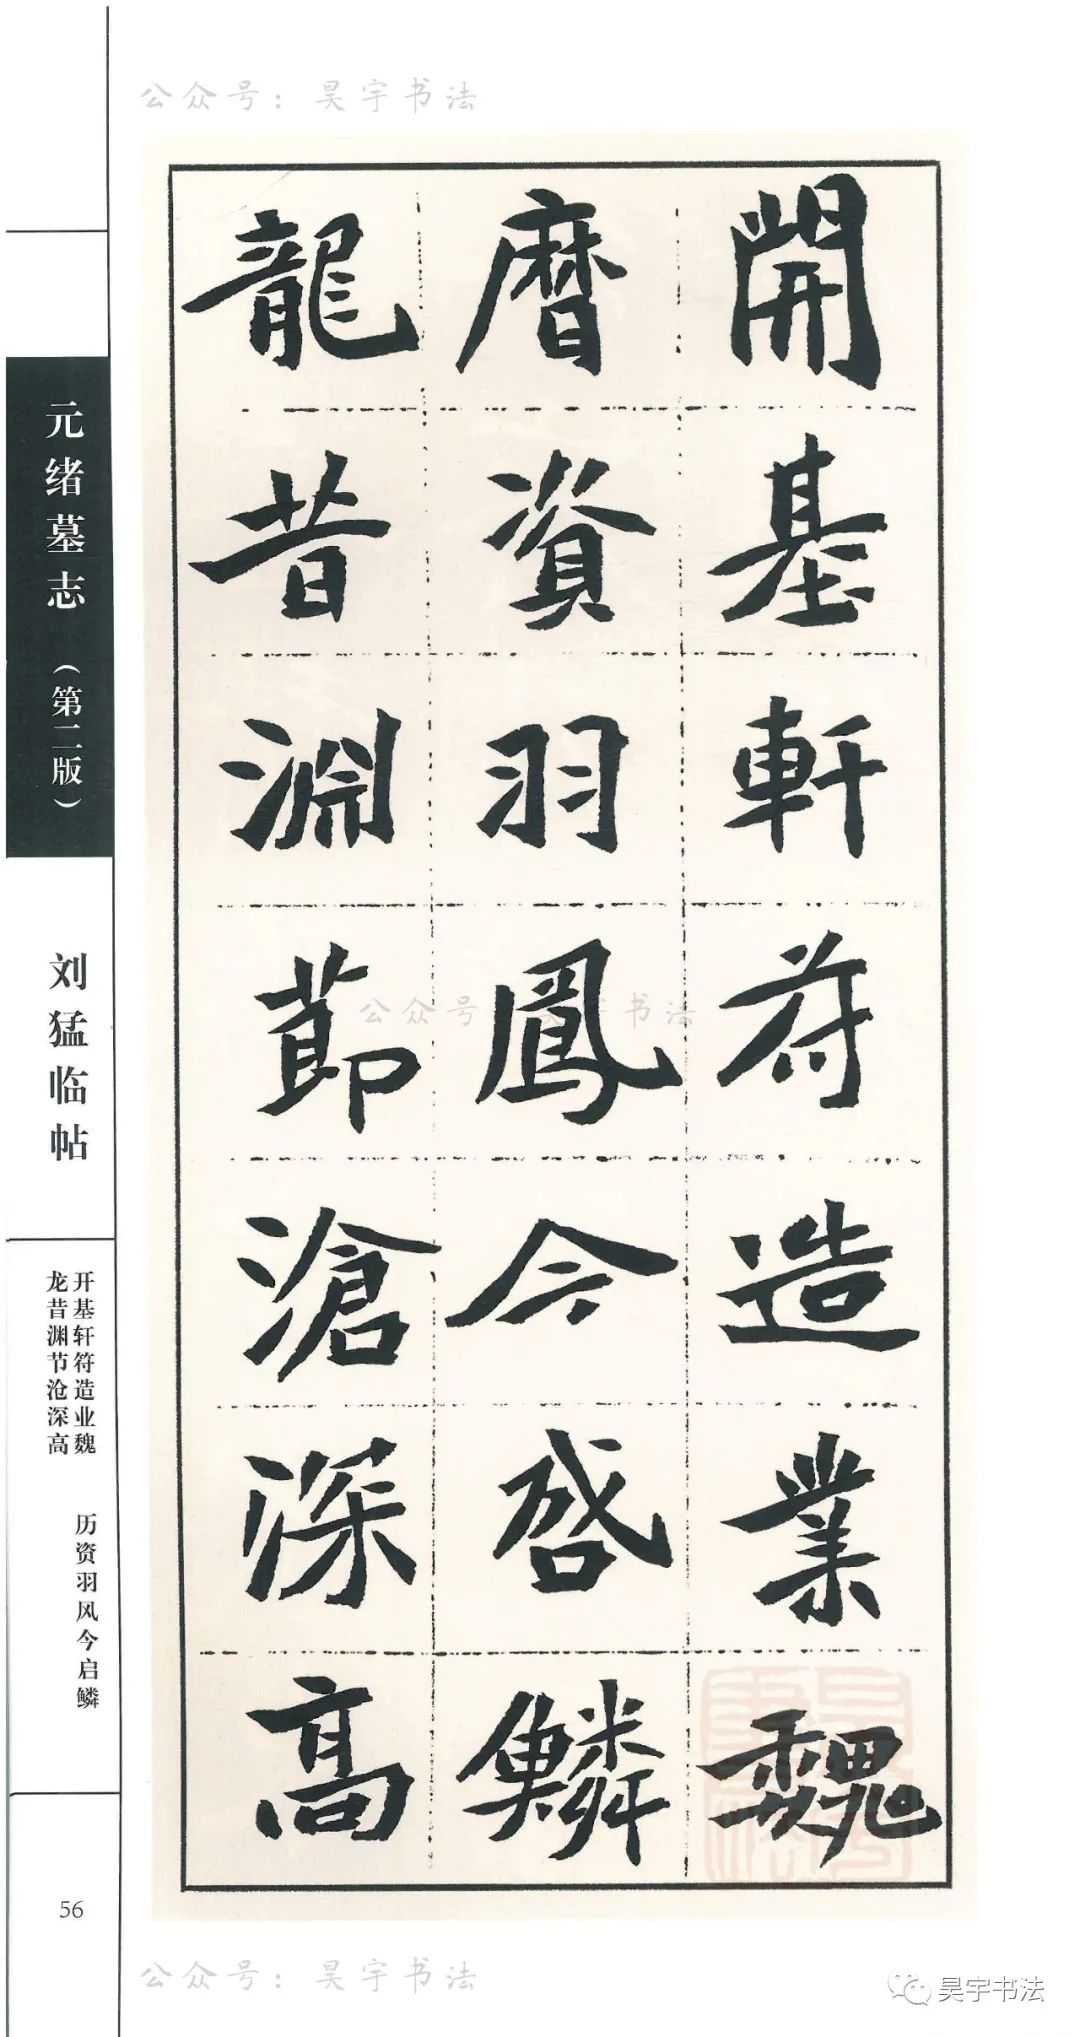 公众号：昊宇书法
開基軒苻造業魏
曆資羽鳳今啓鱗
龍昔淵莭滄深高
公众号：昊宇书法
元绪墓志（第二版）
刘猛临帖
开基轩符造业魏
龙昔渊节沧深高
历资羽风今启鳞
56
公众号：昊宇书法
昊宇书法